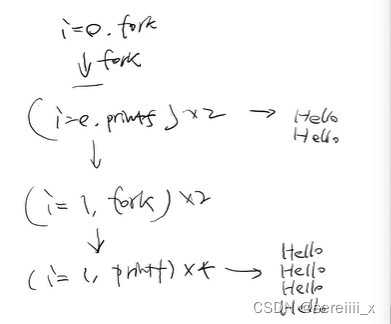 i=0.fork
↓ fork
(i=0.printf)×2 → Hello
Hello
↓
(i=1, fork)×2
↓
(i=1, printf)×4 → Hello
Hello
Hello
Hello
CSDN @aereiiii_x